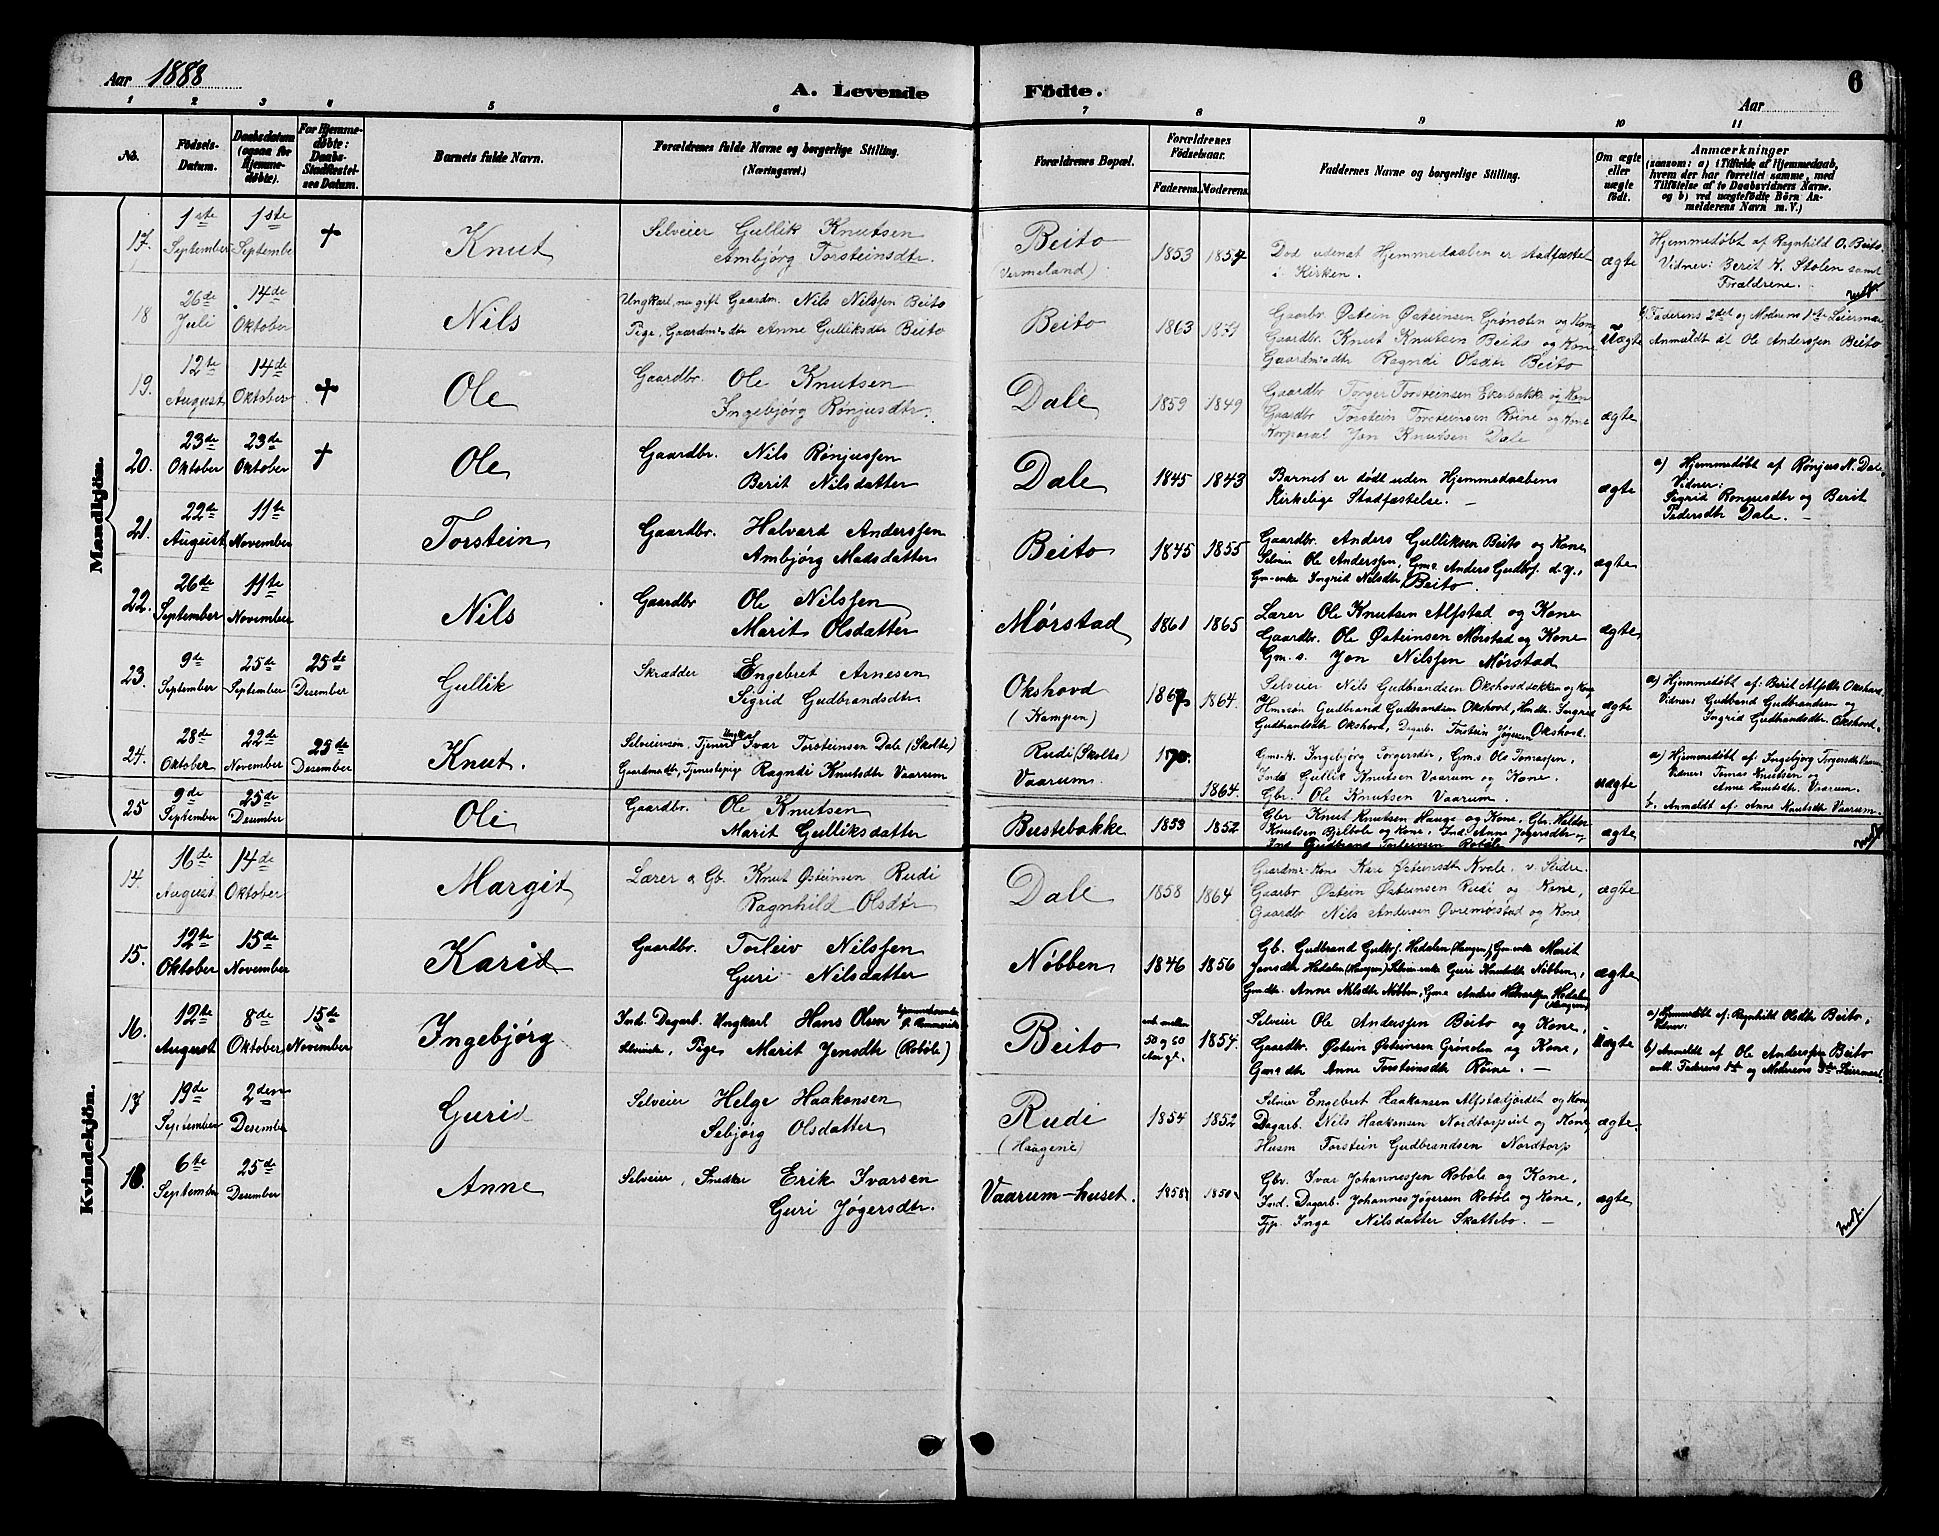 Aar 1888
A. Levende Födte.
Aar
6
1 2 3 4 5 6 7 8 9 10 11
No.
Födsels-Datum.
Daabsdatum (ogsaa for Hjemmedöbte).
For Hjemmedöbte: Daabs-Stadfæstelses Datum.
Barnets fulde Navn.
Forældrenes fulde Navne og borgerlige Stilling. (Næringsvei.)
Forældrenes Bopæl.
Forældrenes Födselsaar.
Faderens. Moderens.
Faddernes Navne og borgerlige Stilling.
Om ægte eller uægte födt.
Anmærkninger
(saasom: a) i Tilfælde af Hjemmedaab, hvem der har forrettet samme, med Tilföielse af to Daabsvidners Navne, og b) ved uægtefödte Börn Anmelderens Navn m. V.)
Mandkjön.
17. 1ste September 1ste September † Knut
Selveier Gullik Knutsen
Ambjörg Torsteinsdtr.
Beito (Vermeland) 1853 1854
Död udenat Hjemmedaaben er stadfæstet
i Kirken.
ægte
Hjemmedöbt af Ragnhild O. Beito
Vidner: Berit K. Stolen samt
Forældrene.
18 26de Juli 14de Oktober Nils
Ungkarl, nu gift Gaardm. Nils Nilssen Beito
Pige, Gaardmsdtr Anne Gulliksdtr Beito
Beito 1863
Gaardbr. Östein Östeinsen Grönolen og Kone
Gaardbr. Knut Knutsen Beito og Kone
Gaardmsdtr Ragndi Olsdtr Beito
Uægte
Faderens 2det og Moderens 1te Leiermaal
Anmeldt af Ole Anderssen Beito
19. 12te August 14de Oktober † Ole
Gaardbr. Ole Knutsen
Ingebjörg Rönjusdtr.
Dale 1859 1849
Gaardbr Torger Torsteinsen og Kone
Gaardbr Torstein Torsteinsen Röine og Kone
Korporal Jon Knutsen Dale
ægte
20. 23de Oktober 23de Oktober † Ole
Gaardbr. Nils Rönjussen
Berit Nilsdatter
Dale 1845 1843
Barnet er dödt uden Hjemmedaabens
Kirkelige Stadfæstelse. —
ægte
a) Hjemmedöbt af Rönjus N. Dale
Vidner:
Sigrid Ronjusdtr og Berit
Pedersdtr Dale. —
21. 22de August 11te November Torstein
Gaardbr. Halvard Anderssen
Ambjörg Madsdatter
Beito 1845 1855
Gaardbr. Anders Gulliksen Beito og Kone
Selveier Ole Anderssen, Gms. Anders Gudbrs. d.y.,
Gm-enke Ingrid Nilsdtr Beito.
ægte
22. 26de September 11te November Nils
Gaardbr Ole Nilssen
Marit Olsdatter
Mörstad 1861 1865
Lærer Ole Knutsen Alfstad og Kone
Gaardbr. Ole Östeinsen Mörstad og Kone
Gm.s. Jon Nilssen Mörstad
ægte
23. 9de September 25de September 25de Desember Gullik
Skrædder Engebret Arnesen
Sigrid Gudbrandsdtr
Okshovd (Kampen) 1864.
Selveier Nils Gudbrandsen Okshovdbakken og Kone
Hmssön Gudbrand Gudbrandsen Okshovd, Hmdtr. Ingrid
Gudbrandsdtr Okshovd, Dagarb. Torstein Jögersen Okshovd.
ægte
a) Hjemmedöbt af: Berit Alfsdtr Okshovd.
Vidner Gudbrand Gudbrandsen og
Ingrid Gudbrandsdtr. Okshovd.
24. 28de Oktober 22de November 25de Desember Knut.
Selveiersön, Tjener Ungkarl Ivar Torsteinsen Dale (Skolte)
Gaardmdtr, Tjenestepige Ragndi Knutsdtr Vaarum
Rudi (Skolte) Vaarum. 1864.
Gms-K. Ingebjörg Torgersdtr, Gm.s Ole Tomassen,
Inds Gullik Knutsen Vaarum og Kone.
Gbr. Ole Knutsen Vaarum.
uægte
a) Hjemmedöbt af: Ingebjörg Torgersdtr Vaarum
Vidner Tomas Knutsen og
Anne Knutsdtr. Vaarum.
b. Anmeldt af: Anne Knutsdtr Vaarum.
25 9de September 25de Desember Ole
Gaardbr. Ole Knutsen
Marit Gulliksdatter
Bustebakke 1853 1852
Gbr Knut Knutsen Hauge og Kone, Gbr. Haldor
Knutsen Bjelbole og Kone, Ind. Anne Jögersdtr og
Ind. Gudbrand Torleivsen Robøle
ægte
Kvindekjön.
14. 16de August 14de Oktober Margit
Lærer & Gb. Knut Östeinsen Rudi
Ragnhild Olsdtr
Dale 1858 1864
Gaardms-Kone Kari Östeinsdtr Kvale v. Slidre.
Gaardbr Östein Östeinsen Rudi og Kone,
Gaardbr Nils Andersen Övremörstad og Kone
ægte
15. 12te Oktober 15de November Karid
Gaardbr. Torleiv Nilssen
Guri Nilsdatter
Nöbben 1846 1856
Gb. Gudbrand Gudbrs. Hedalen (Haugen), Gm-enke Marit
Jonsdtr Hedalen (Haugen) Selveier-enke Guri Knutsdtr Nöbben,
Gmsdtr. Anne Nilsdtr Nöbben, Gms Anders Halvorssen Hedalen (Haugen)
ægte
16. 12te August 8de Oktober 15de November Ingebjörg
Ind. Dagarb. Ungkarl Hans Olsen
Selveierdtr, Pige Marit Jonsdtr (Robøle)
Beito 50 og 60 1854.
Selveier Ole Anderssen Beito og Kone,
Gaardbr. Östein Östeinsen Grönolen og Kone,
Gmsdtr Anne Torsteinsdtr Röine. —
Uægte
a) Hjemmedöbt af: Ragnhild Olsdtr Beito,
b) Anmeldt af Ole Anderssen Beito
Faderens 1te og Moderens Leiermaal.
17 19de September 2den Desember Guri
Selveier Helge Haakonsen
Sebjörg Olsdatter
Rudi (Haagene) 1854 1852
Selveier Engebret Haakonsen Alfstadjordet og Kone,
Dagarb. Nils Haakonsen Nordtorpeiet og Kone,
Husm Torstein Gudbrandsen Nordtorp
ægte.
18. 6te September 25de Desember Anne
Selveier, Snedker Erik Ivarsen
Guri Jögersdtr.
Vaarum-huset. 1858 1850
Gbr. Ivar Johannessen Robøle og Kone,
Ind. Dagarb. Johannes Jögersen Robøle og Kone,
Tjp. Inga Nilsdatter Skattebo. —
ægte